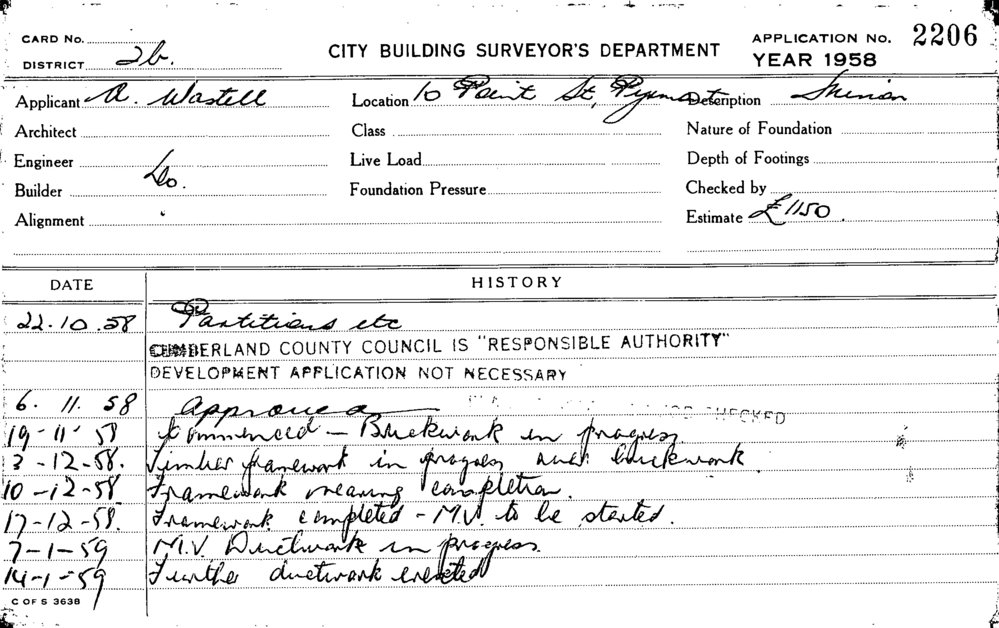 CARD No.
DISTRICT 2b.
CITY BUILDING SURVEYOR'S DEPARTMENT
APPLICATION No. 2206
YEAR 1958
Applicant A. Wastell Location 10 Point St, Pyrmont Description Minor
Architect Class Nature of Foundation
Engineer Live Load Depth of Footings
Builder Do. Foundation Pressure Checked by
Alignment Estimate £1150.
DATE HISTORY
22.10.58 Partitions etc
CUMBERLAND COUNTY COUNCIL IS "RESPONSIBLE AUTHORITY"
DEVELOPMENT APPLICATION NOT NECESSARY
6. 11. 58 Approved CHECKED
19-11-58 Commenced - Brickwork in progress
3-12-58. Timber framework in progress and brickwork.
10-12-58 Framework nearing completion.
17-12-58. Framework completed - M.V. to be started.
7-1-59 M.V. Ductwork in progress.
14-1-59 Further ductwork erected
C OF S 3638